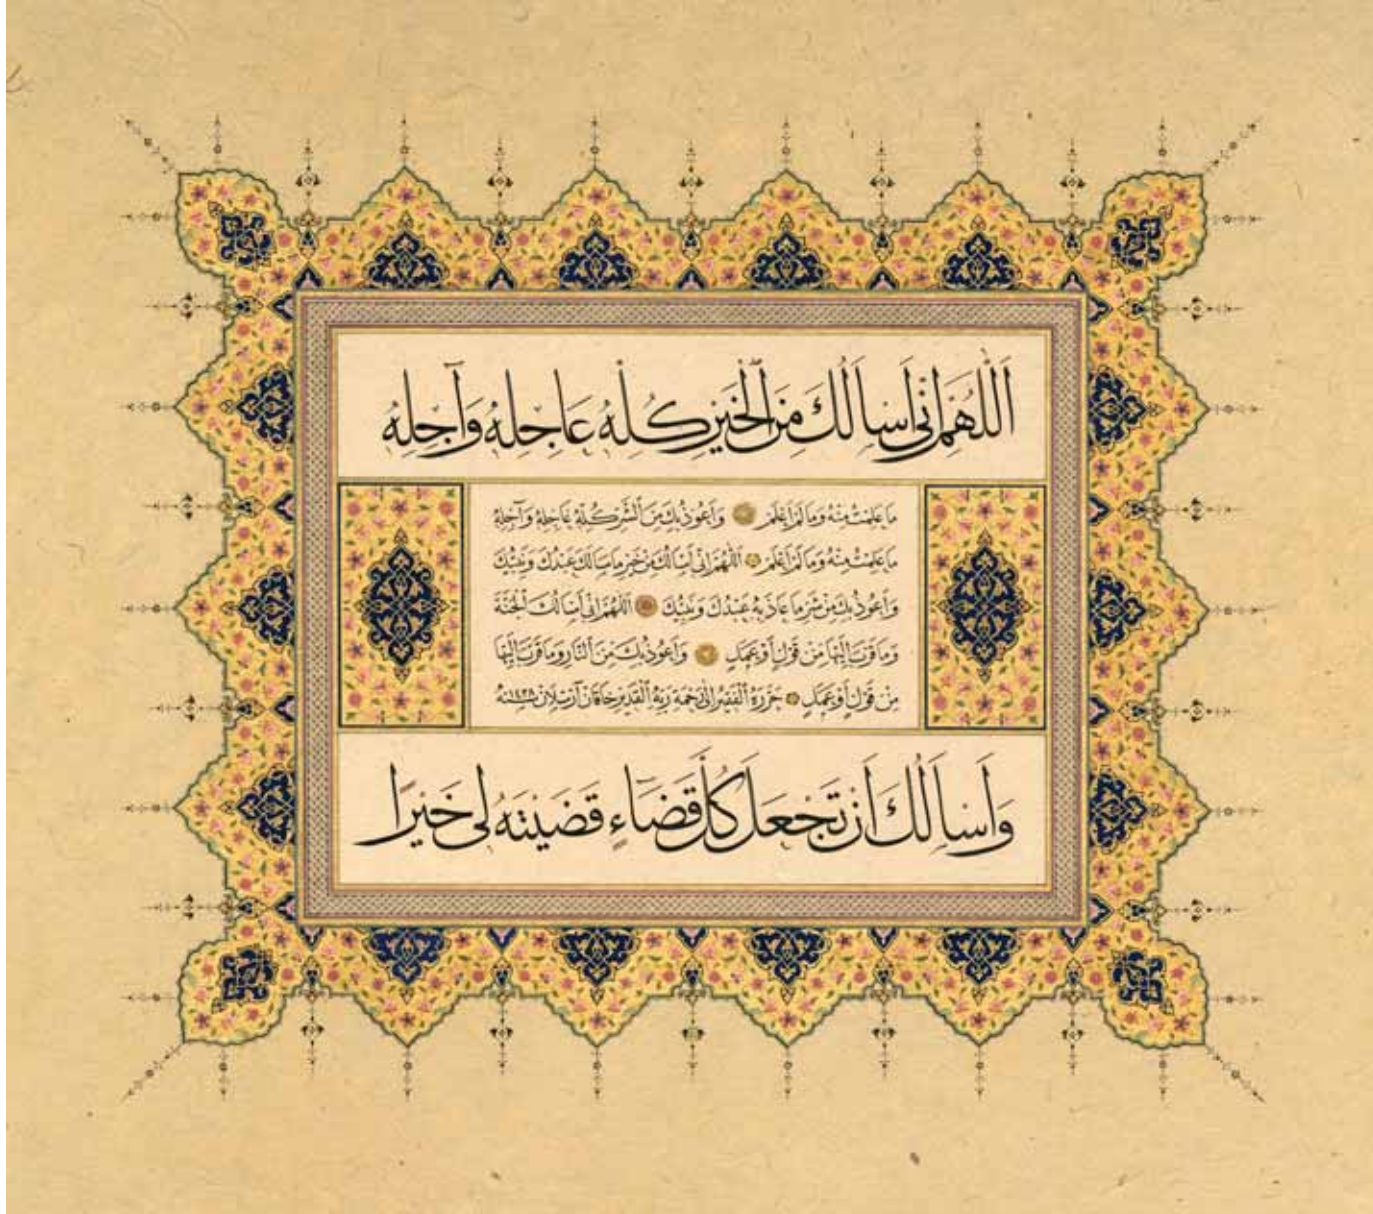 اَللّٰهُمَّ اِنّٖى اَسْاَلُكَ مِنَ الْخَيْرِ كُلِّهٖ عَاجِلِهٖ وَاٰجِلِهٖ
مَا عَلِمْتُ مِنْهُ وَمَا لَمْ اَعْلَمْ وَاَعُوذُ بِكَ مِنَ الشَّرِّ كُلِّهٖ عَاجِلِهٖ وَاٰجِلِهٖ
مَا عَلِمْتُ مِنْهُ وَمَا لَمْ اَعْلَمْ اَللّٰهُمَّ اِنّٖى اَسْاَلُكَ مِنْ خَيْرِ مَا سَاَلَكَ عَبْدُكَ وَنَبِيُّكَ
وَاَعُوذُ بِكَ مِنْ شَرِّ مَا عَاذَ بِهٖ عَبْدُكَ وَنَبِيُّكَ اَللّٰهُمَّ اِنّٖى اَسْاَلُكَ الْجَنَّةَ
وَمَا قَرَّبَ اِلَيْهَا مِنْ قَوْلٍ اَوْ عَمَلٍ وَاَعُوذُ بِكَ مِنَ النَّارِ وَمَا قَرَّبَ اِلَيْهَا
مِنْ قَوْلٍ اَوْ عَمَلٍ حَرَّرَهُ الْفَقِيرُ اِلٰى رَحْمَةِ رَبِّهِ الْقَدِيرِ خاقان آرسلان سنه
وَاَسْاَلُكَ اَنْ تَجْعَلَ كُلَّ قَضَاءٍ قَضَيْتَهُ لٖى خَيْرًا